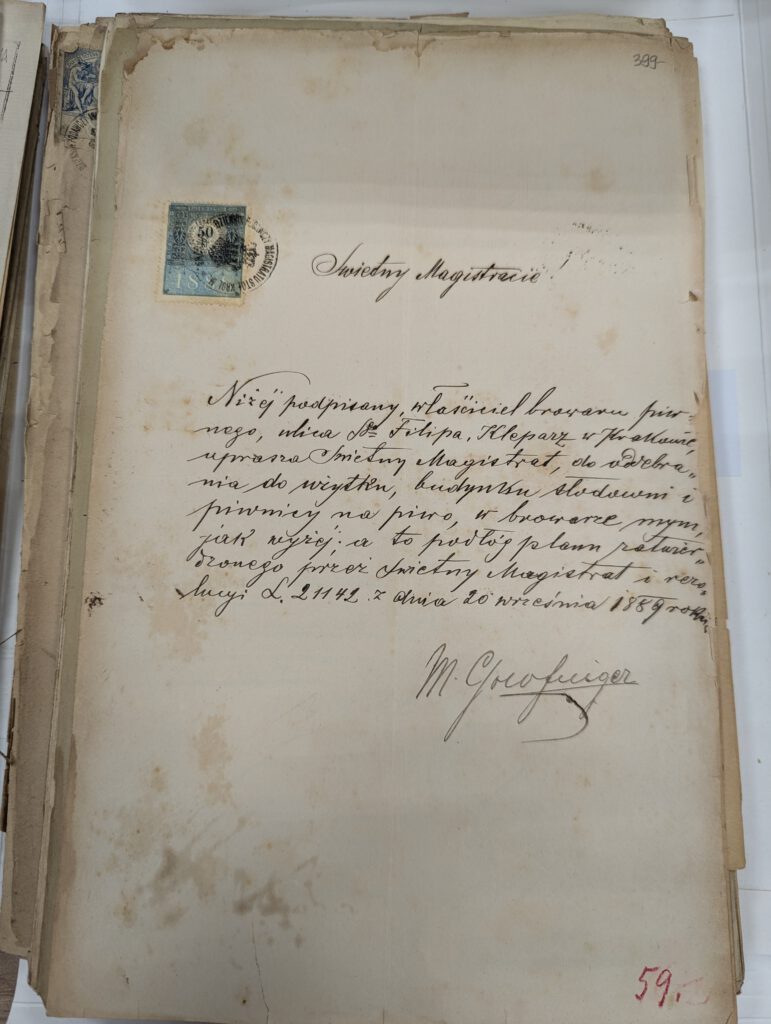 399
50
18
Świetny Magistracie!
Niżéj podpisany, właściciel browaru piw-
nego, ulica Śgo Filipa, Kleparz w Krakowie,
uprasza Świetny Magistrat, do odebra„
nia do użytku, budynku słodowni i
piwnicy na piwo, w browarze mym,
jak wyżéj; a to podłóg planu zatwier„
dzonego przez Świetny Magistrat i rezo„
lucyi L. 21142 z dnia 20 września 1889 roku.
M.
59.